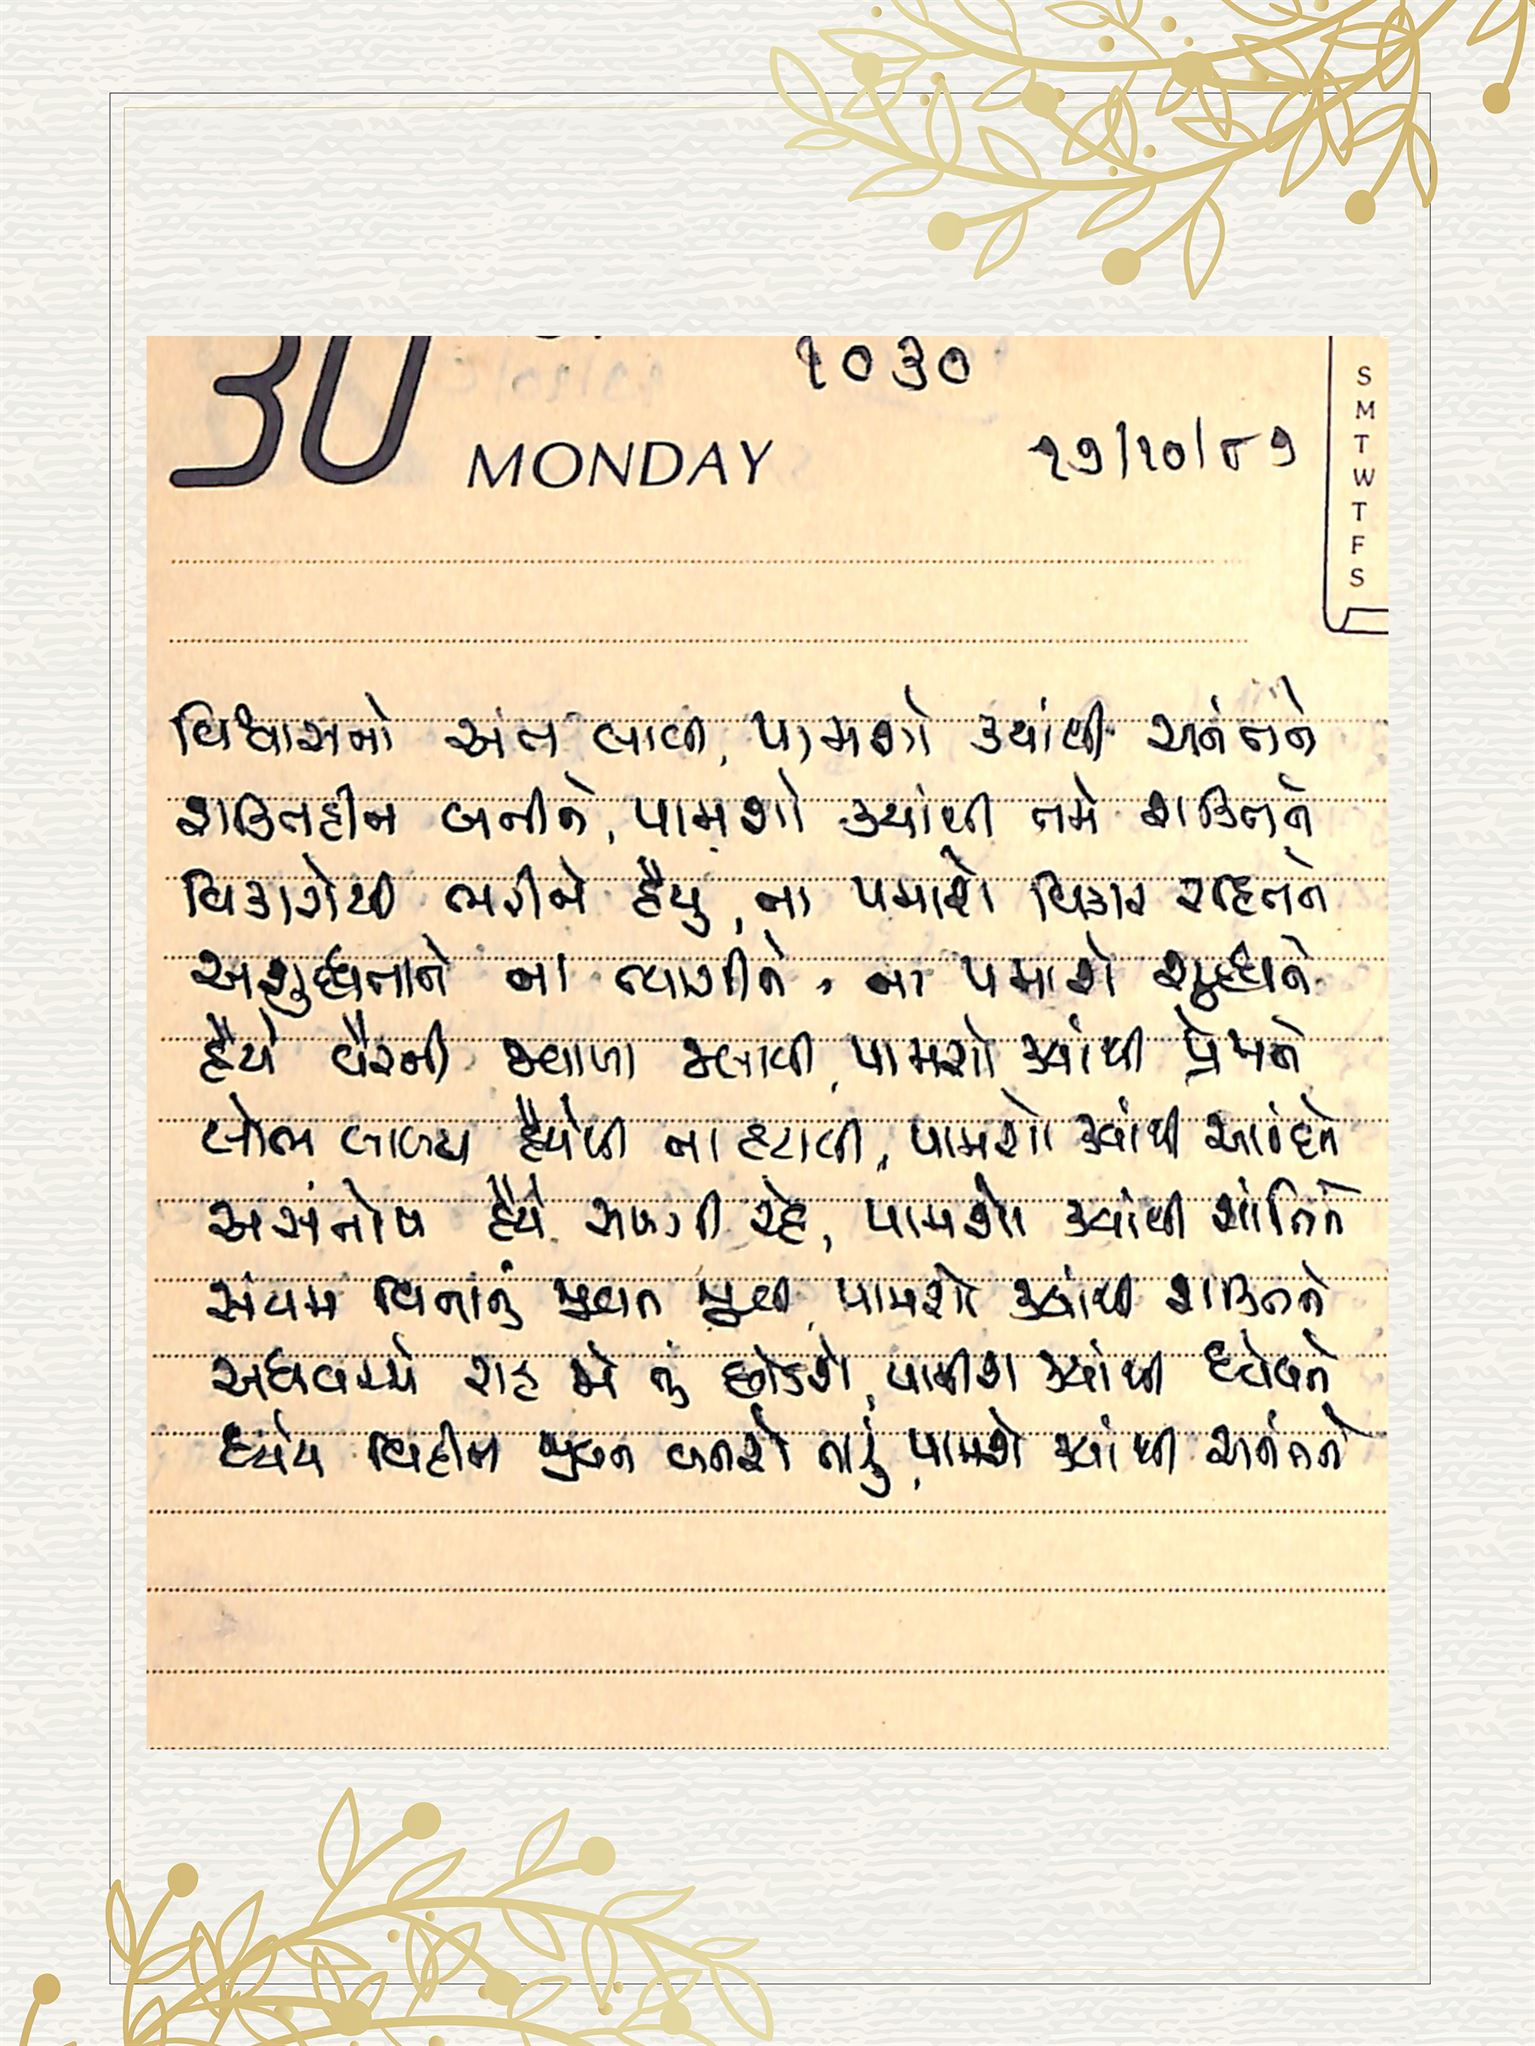 30
૧૦૩૦
MONDAY
૨૭/૧૦/૮૭
S
M
T
W
T
F
S
વિશ્વાસનો અંત લાવી, પામશો ક્યાંથી અનંતને
શક્તિહીન બનીને, પામશો ક્યાંથી તમે શક્તિને
વિકારોથી ભરીને હૈયુ, ના પમાશે વિકાર રહિતને
અશુદ્ધતાને ના ત્યાગીને, ના પમાશે શુદ્ધને
હૈયે વૈરની જ્વાળા જલાવી, પામશો ક્યાંથી પ્રેમને
લોભ લાલચ હૈયેથી ના હટાવી, પામશો ક્યાંથી આનંદને
અસંતોષ હૈયે સળગી રહે, પામશો ક્યાંથી શાંતિને
સંયમ વિનાનું જીવન જીવી, પામશો ક્યાંથી શક્તિને
અધવચ્ચે રાહ જો તું છોડશે, પામીશ ક્યાંથી ધ્યેયને
ધ્યેય વિહીન જીવન બનશે તારું, પામશે ક્યાંથી અનંતને